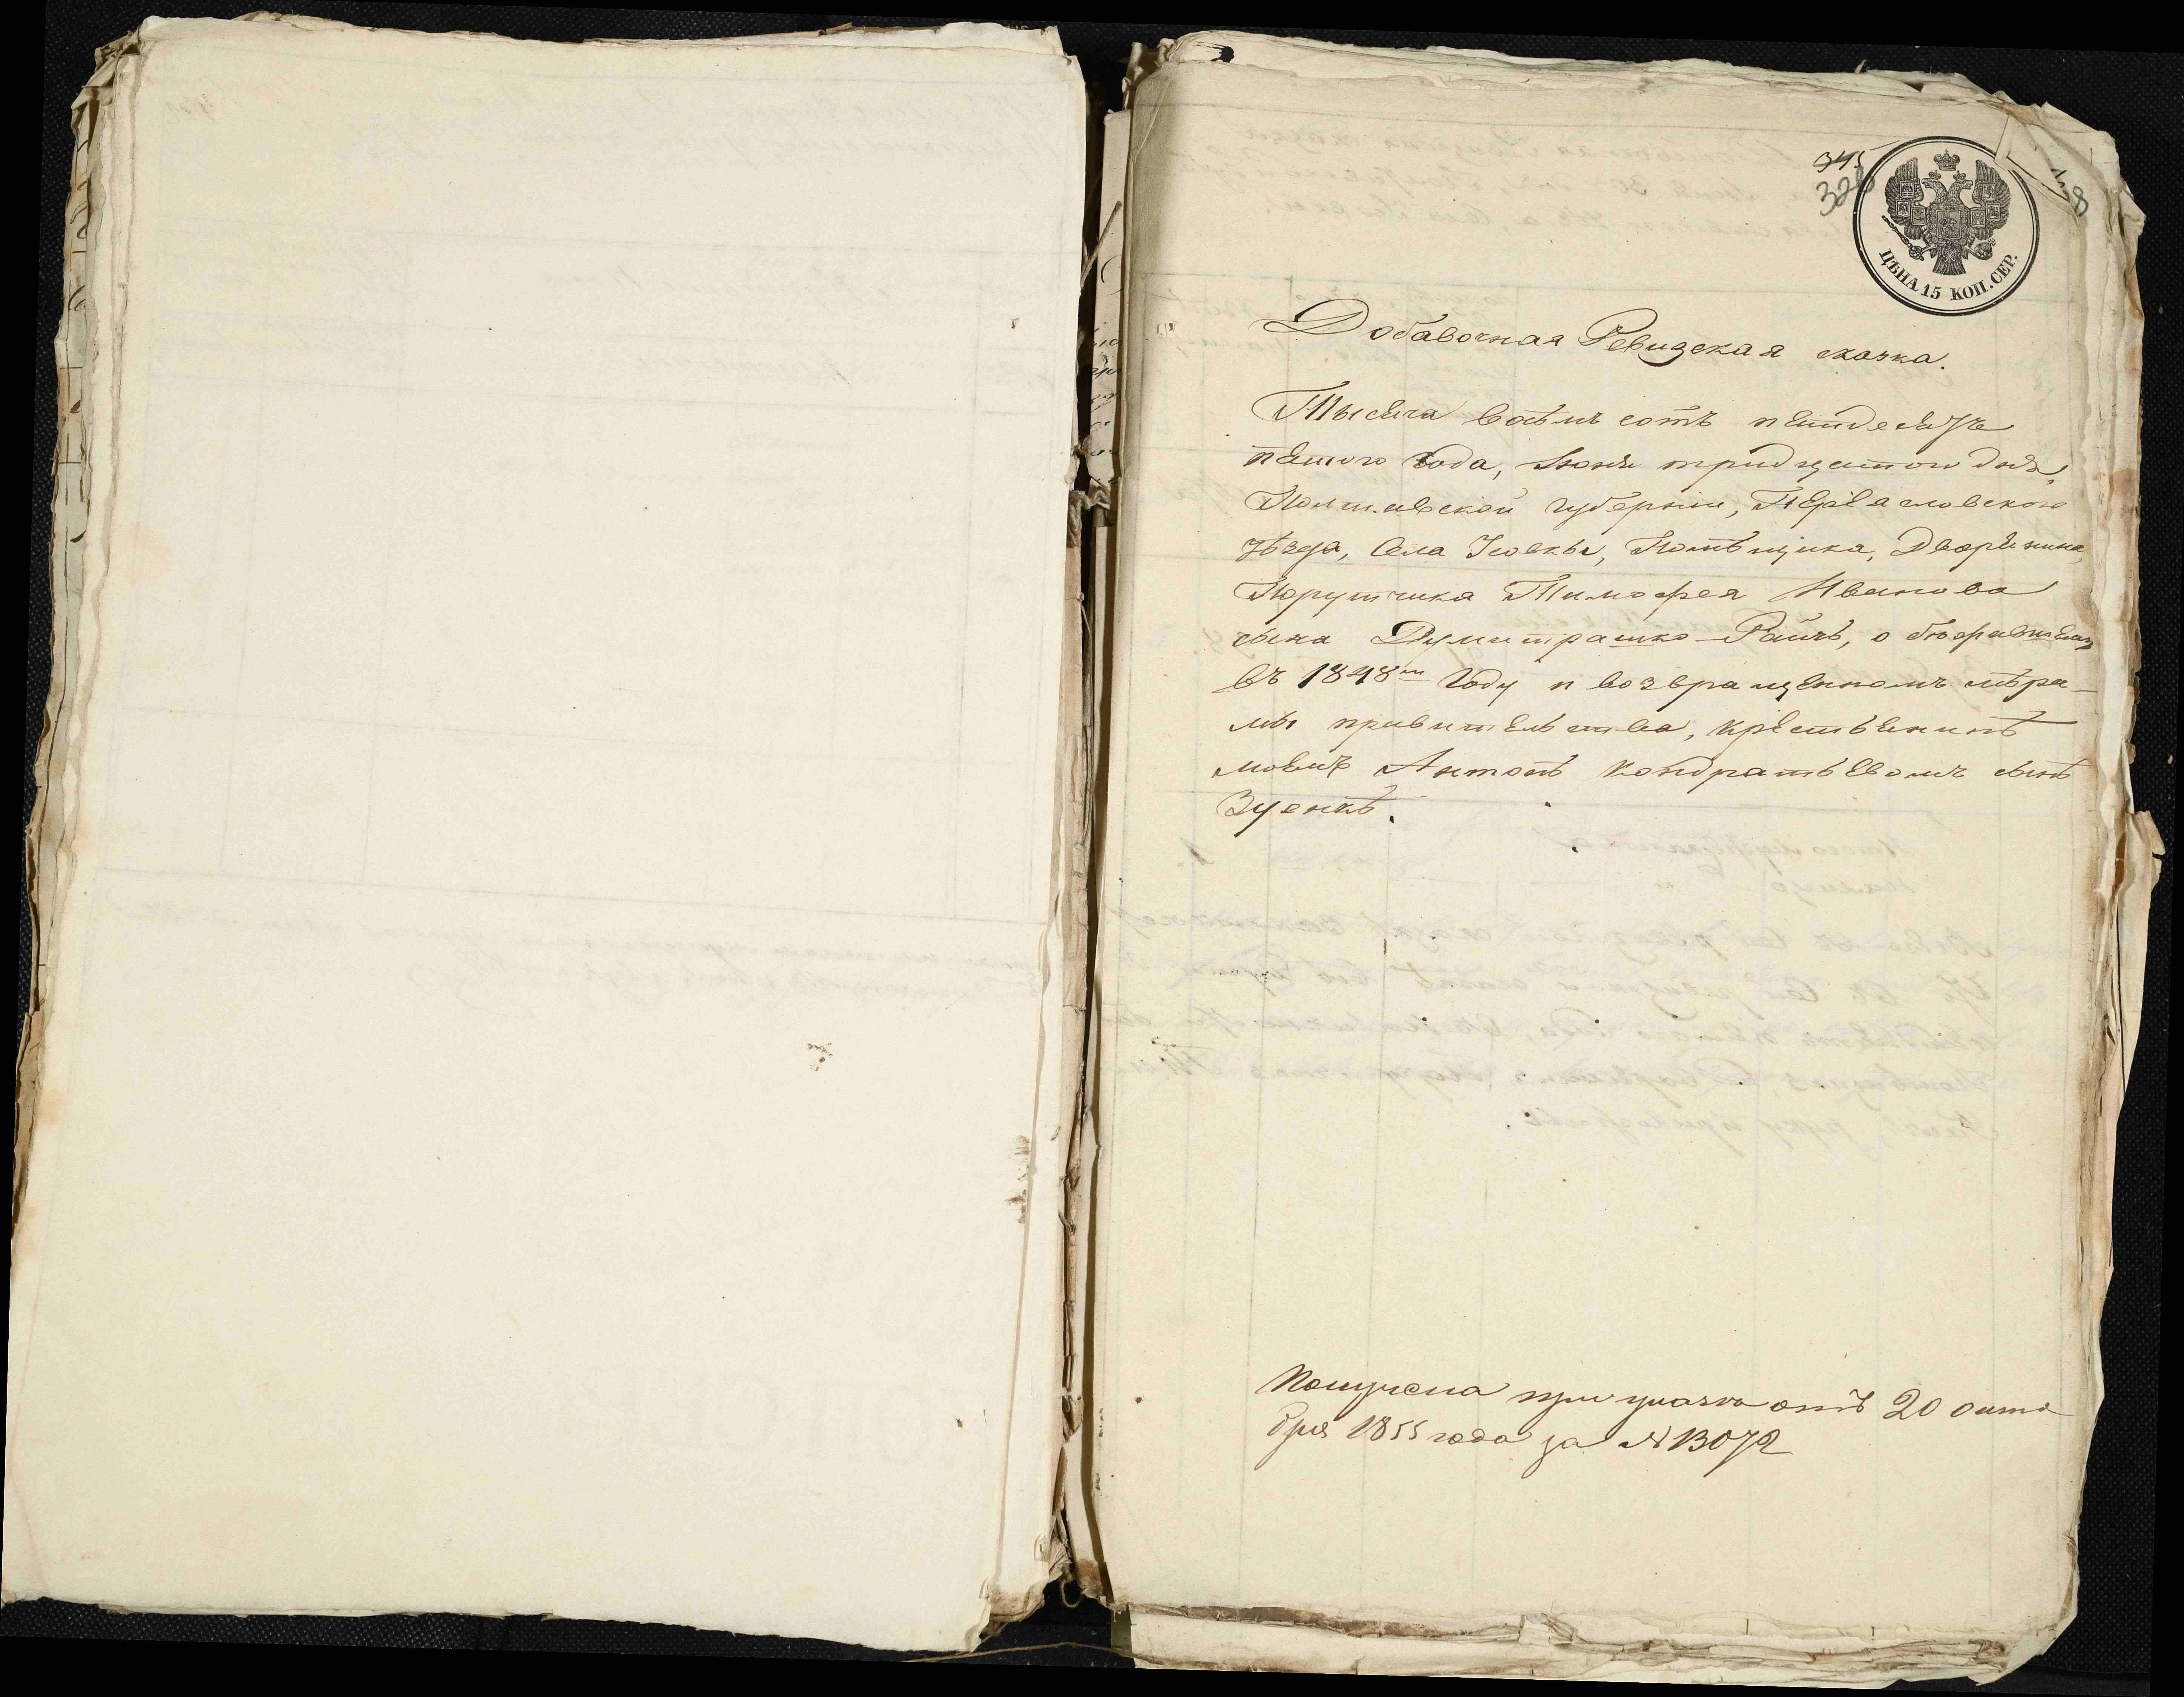 345
328
118
ЦѢНА 15 КОП. СЕР.
Добавочная Ревизская сказка.
Тысяча восѣмъ сотъ пятдесятъ
пятого Года, Іюня тридцатого дня,
Полтавской губерніи, Переясловского
уѣзда, Села Усовки, Помѣщика, Дворянина,
Порутчика Тимофея Иванова
сына Думитрашко-Райчъ, о
въ 1848м Году и возвращенномъ мѣра-
мы правительства, крестьянинѣ
моемъ Антонѣ Кондратьевомъ сынѣ
Зуенкѣ.
Получена при указѣ отъ 20 октя
бря 1855 года за № 13072